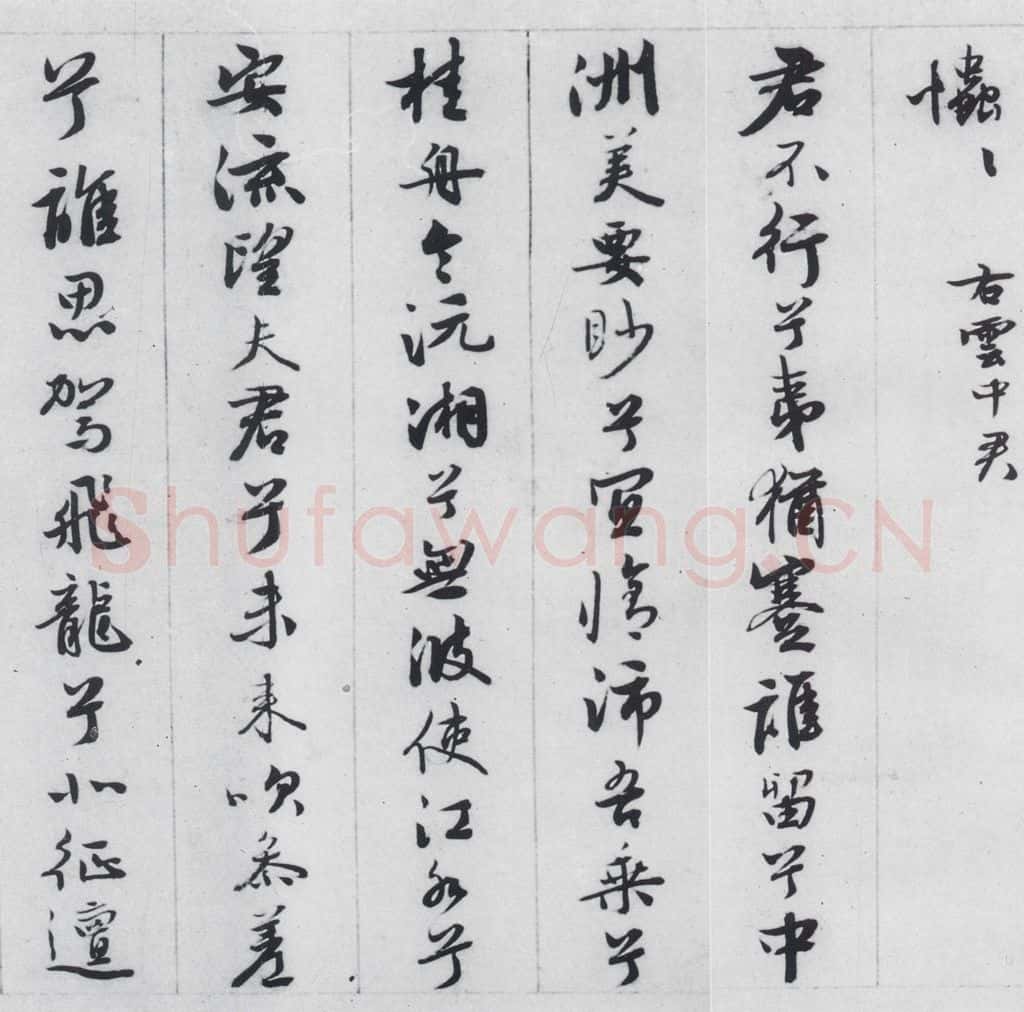 忡忡 右雲中君
君不行兮夷猶蹇誰留兮中
洲美要眇兮宜脩沛吾乘兮
桂舟令沅湘兮無波使江水兮
安流望夫君兮未來吹參差
兮誰思駕飛龍兮北征邅
Shufawang.CN